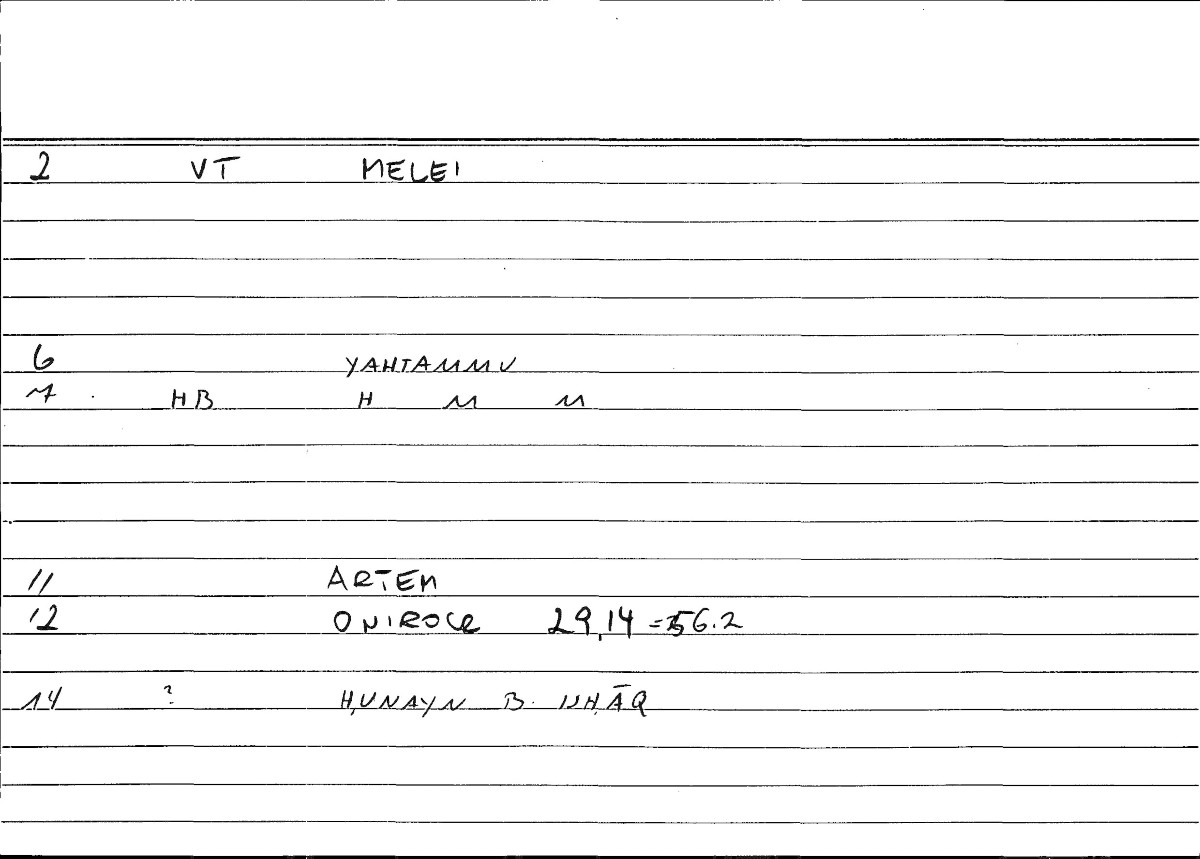 2 VT MELEI
6 YAHTAMMU
7 HB H M M
11 ARTEM
12 ONIROCR 29,14 = 56.2
14 ? ḤUNAYN B. ISḤĀQ